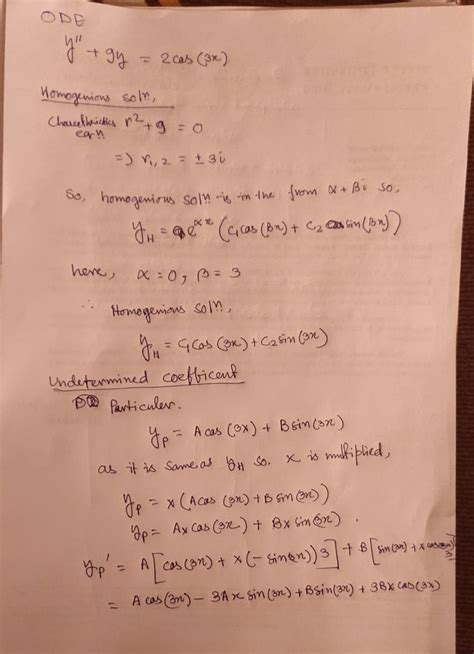 ODE
y'' + 9y = 2cos(3x)
Homogenious solⁿ,
Charecthrictics r² + 9 = 0
eqn
=> r₁,₂ = ± 3i
So, homogenious solⁿ is in the from α + βi so,
y_H = e^αx (C₁cos(βx) + C₂ sin(βx))
here, α = 0, β = 3
∴ Homogenious solⁿ,
y_H = C₁cos(3x) + C₂sin(3x)
Undetermined coefficent
Particuler.
y_p = A cos(3x) + B sin(3x)
as it is same as y_H so. x is multiplied,
y_p = x(A cos(3x) + B sin(3x))
y_p = Ax cos(3x) + Bx sin(3x).
y_p' = A[cos(3x) + x(-sin(3x))3] + B[sin(3x) + x cos(3x)3]
= A cos(3x) - 3Ax sin(3x) + B sin(3x) + 3Bx cos(3x)